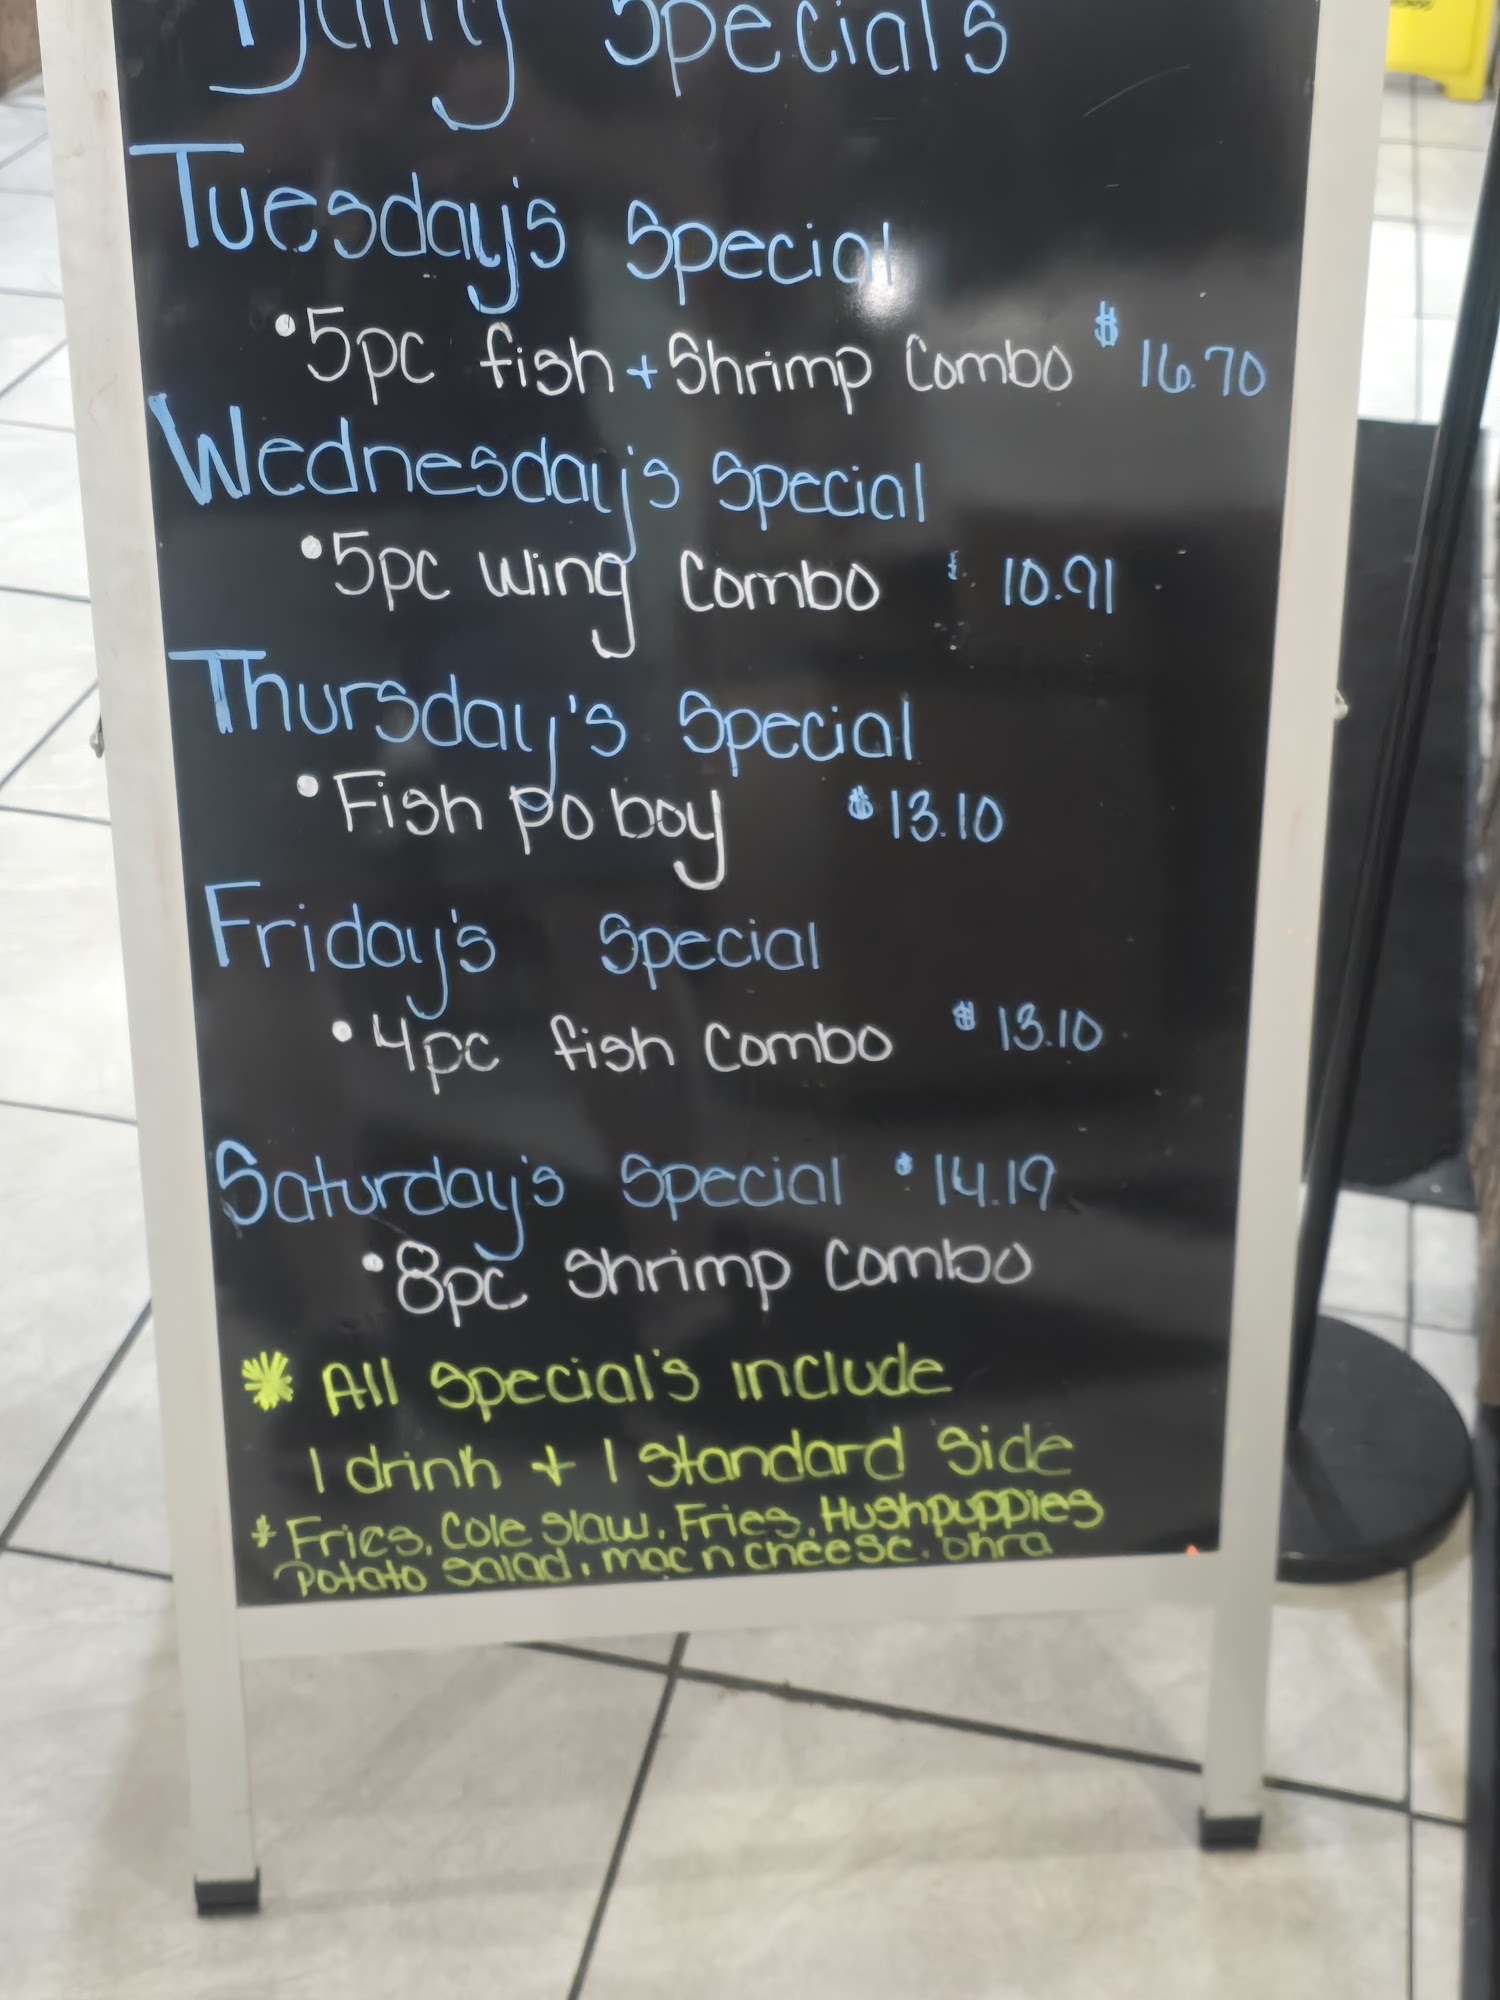 Daily Specials
Tuesday's Special
•5pc fish + Shrimp Combo $16.70
Wednesday's Special
•5pc wing Combo $ 10.91
Thursday's Special
•Fish po boy $13.10
Friday's Special
•4pc fish Combo $13.10
Saturday's Special $14.19
•8pc Shrimp Combo
* All Special's include
1 drink + 1 Standard Side
* Fries, Cole slaw, Fries, Hushpuppies
Potato Salad, mac n cheese, okra